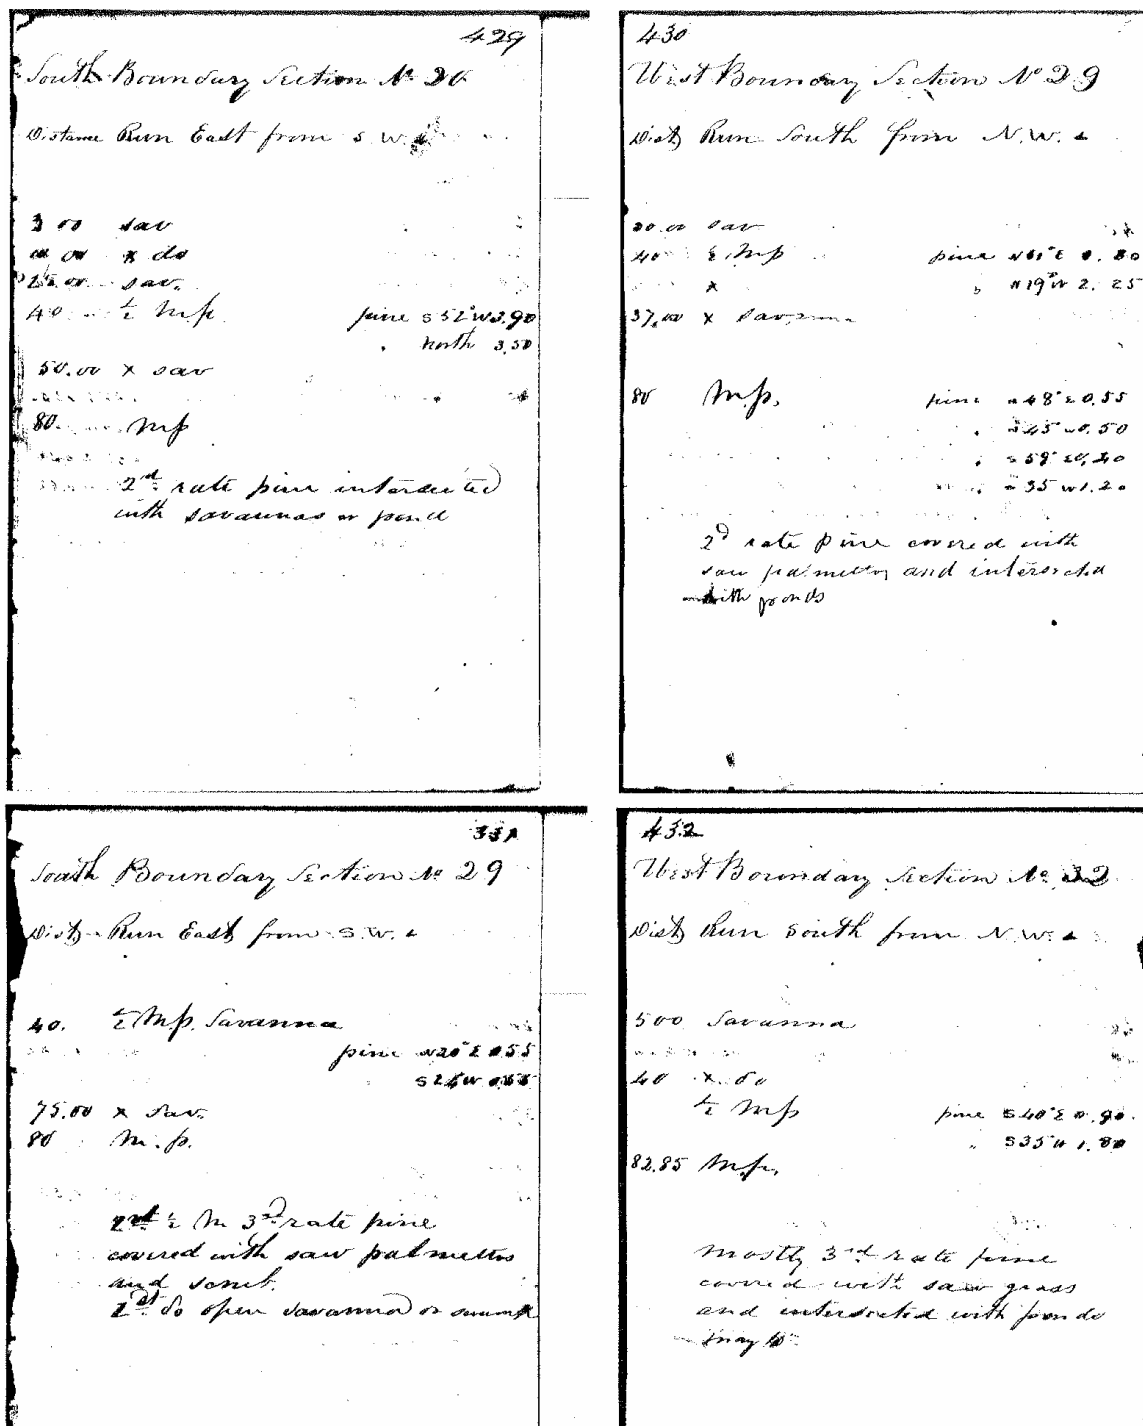 429
South Boundary Section No 20
Distance Run East from S.W.
3 00 sav
00 x do
25.00 sav.
40 ½ Mp pine S52°W 3.90
" north 3.50
50.00 x sav
80 Mp
2nd rate pine intersected
with savannas or pond
430
West Boundary Section No 29
Dist Run South from N.W.
20.00 sav
40 ½ Mp pine N61°E 0.80
x " N19°W 2.25
37.00 x savanna
80 M.p. pine 48°E 0.55
" 45 W 0.50
" 0.20
" 35 W 1.20
2d rate pine covered with
saw palmettos and intersected
with ponds
331
South Boundary Section No 29
Dist Run East from S.W.
40. ½ Mp. Savanna
pine N20°E 0.55
75.00 x sav.
80 M.p.
½ M 3rd rate pine
covered with saw palmettos
and scrub.
do open savanna or swamp
432
West Boundary Section No 32
Dist Run South from N.W.
500 Savanna
40 x do
½ Mp pine S40°E 0.90
" S35 W 1.80
82.85 M.p.
mostly 3rd rate pine
covered with saw grass
and intersected with ponds
May